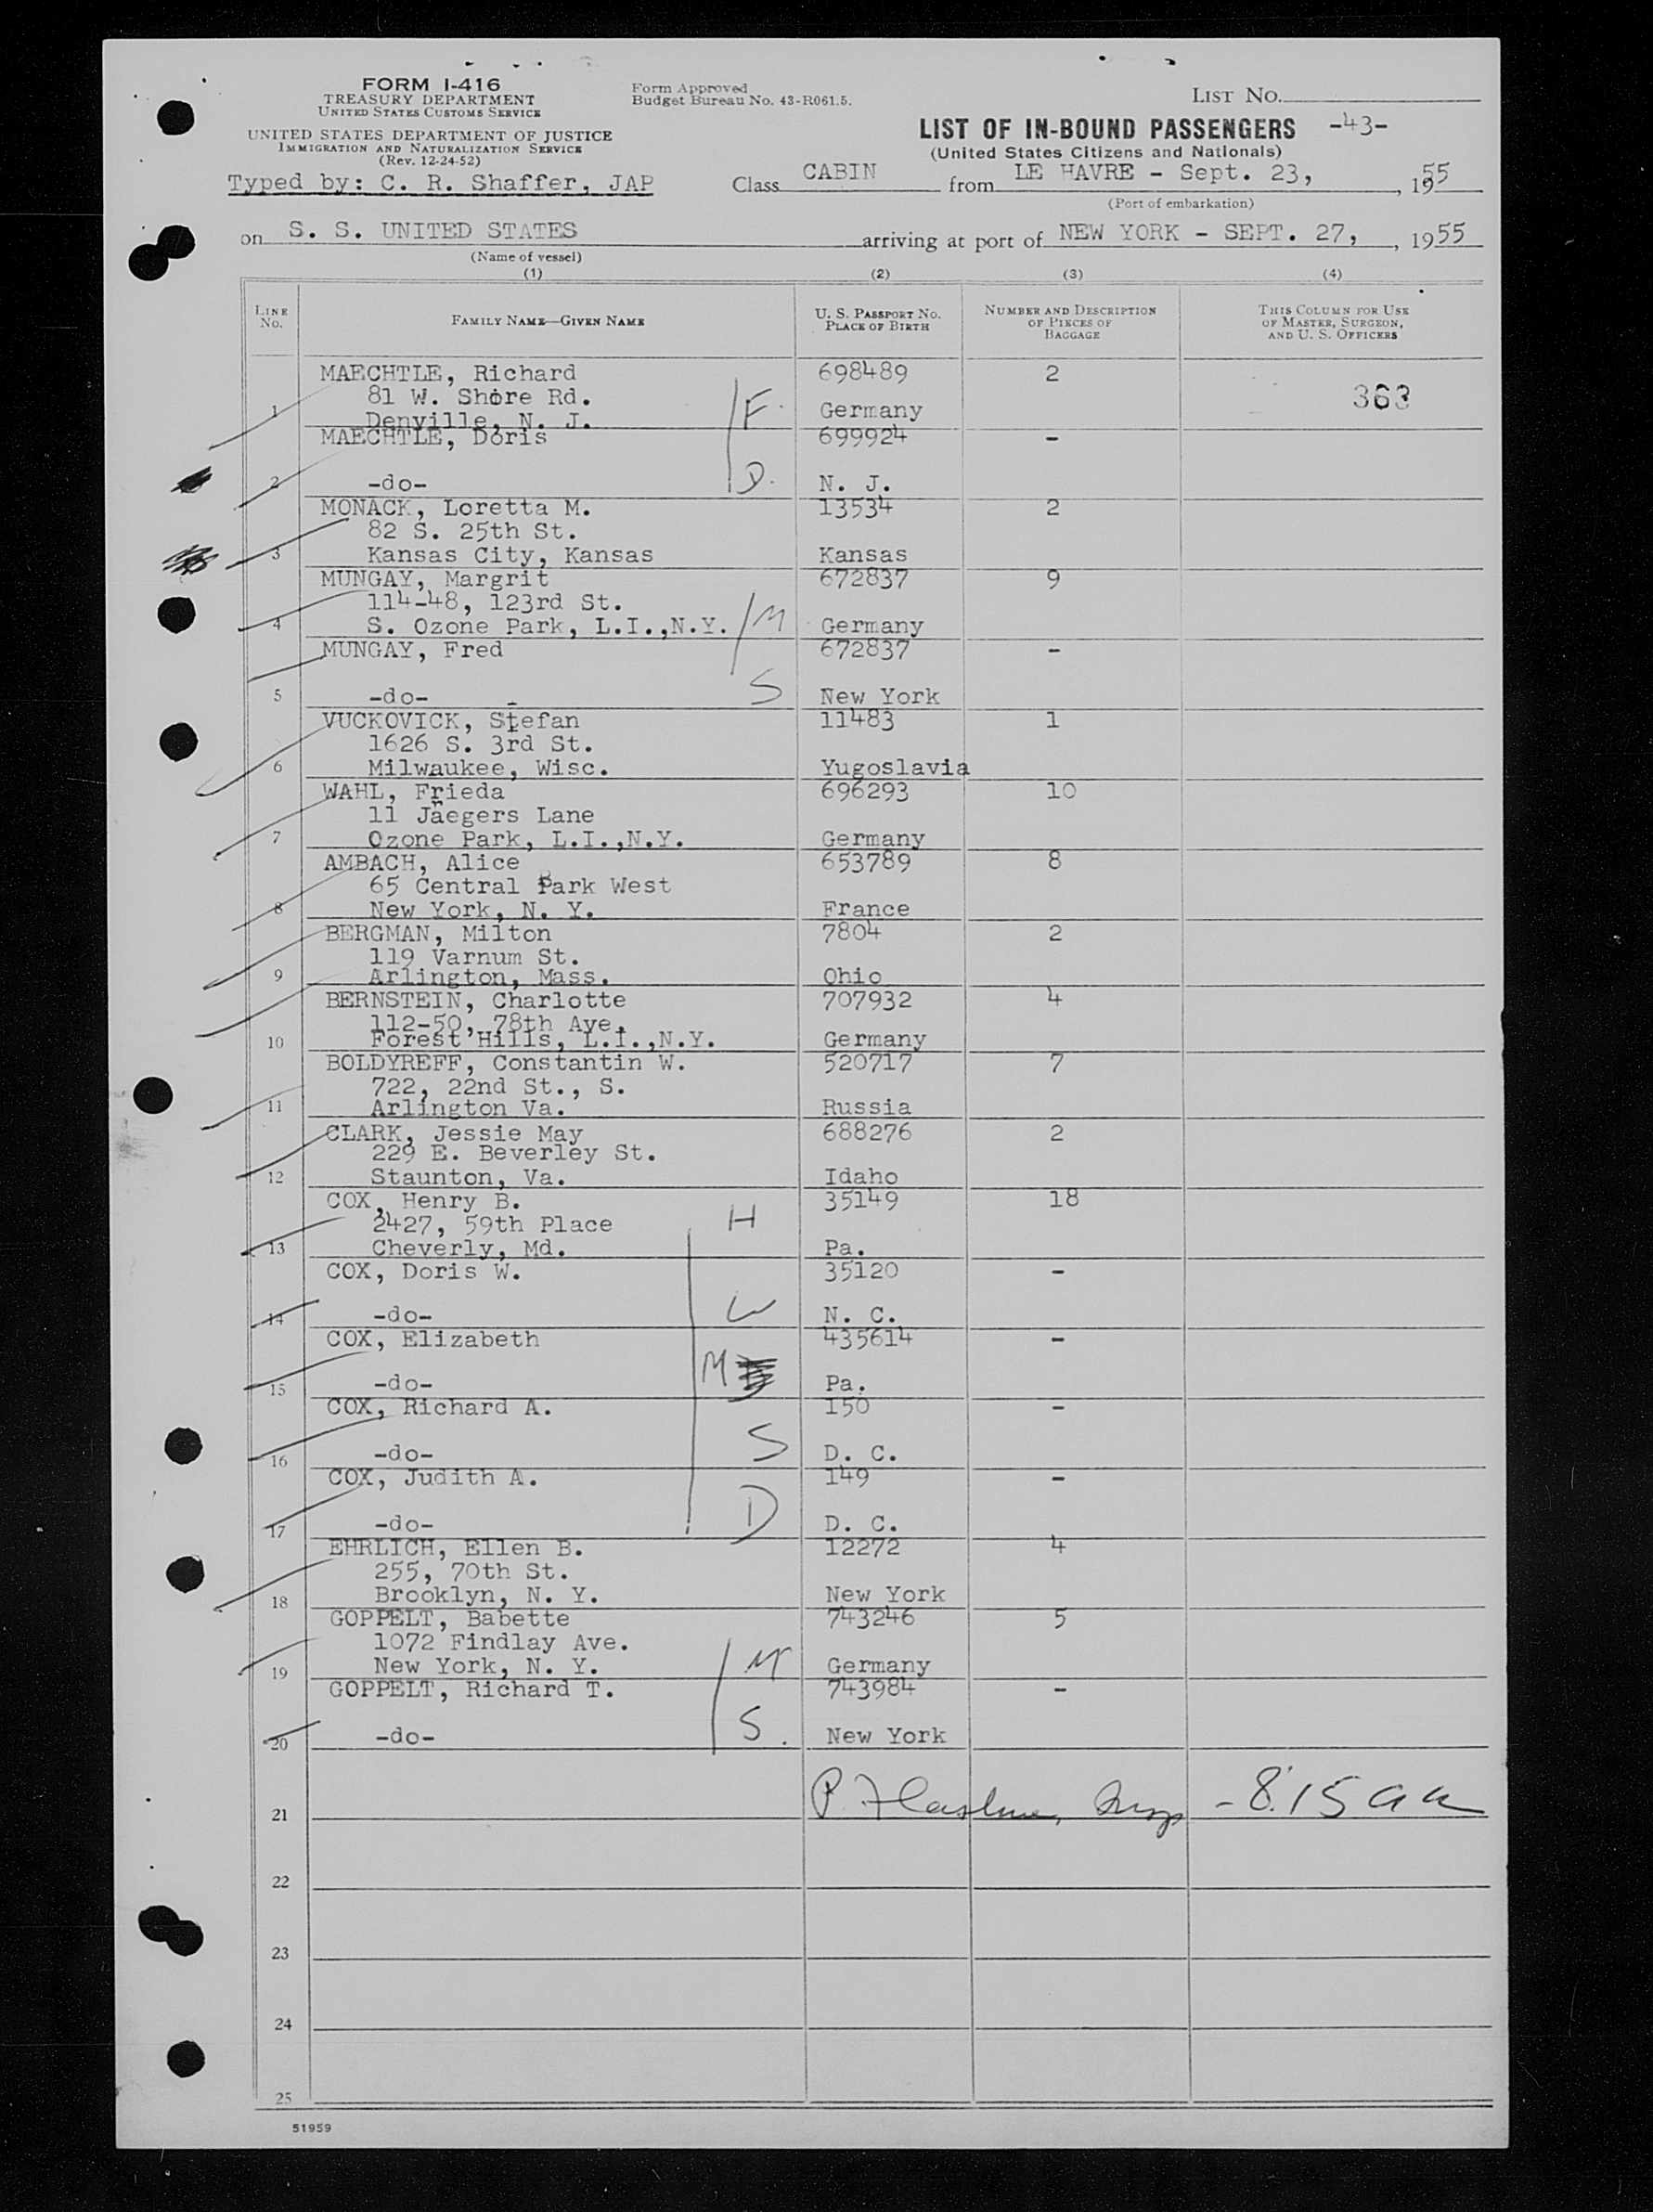 FORM I-416
TREASURY DEPARTMENT
UNITED STATES CUSTOMS SERVICE
UNITED STATES DEPARTMENT OF JUSTICE
IMMIGRATION AND NATURALIZATION SERVICE
(Rev. 12-24-52)
Typed by: C. R. Shaffer, JAP
Form Approved
Budget Bureau No. 43-R061.5.
LIST NO.
LIST OF IN-BOUND PASSENGERS -43-
(United States Citizens and Nationals)
Class CABIN from LE HAVRE - Sept. 23, , 1955
(Port of embarkation)
on S. S. UNITED STATES arriving at port of NEW YORK - SEPT. 27, , 1955
(Name of vessel)
(1) (2) (3) (4)
LINE NO. FAMILY NAME—GIVEN NAME U. S. PASSPORT NO. PLACE OF BIRTH NUMBER AND DESCRIPTION OF PIECES OF BAGGAGE THIS COLUMN FOR USE OF MASTER, SURGEON, AND U. S. OFFICERS
MAECHTLE, Richard 698489 2
81 W. Shore Rd. 363
1 Denville, N. J. F. Germany
MAECHTLE, Doris 699924 -
2 -do- D. N. J.
MONACK, Loretta M. 13534 2
82 S. 25th St.
3 Kansas City, Kansas Kansas
MUNGAY, Margrit 672837 9
114-48, 123rd St.
4 S. Ozone Park, L.I.,N.Y. M Germany
MUNGAY, Fred 672837 -
5 -do- S New York
VUCKOVICK, Stefan 11483 1
1626 S. 3rd St.
6 Milwaukee, Wisc. Yugoslavia
WAHL, Frieda 696293 10
11 Jaegers Lane
7 Ozone Park, L.I.,N.Y. Germany
AMBACH, Alice 653789 8
65 Central Park West
8 New York, N. Y. France
BERGMAN, Milton 7804 2
119 Varnum St.
9 Arlington, Mass. Ohio
BERNSTEIN, Charlotte 707932 4
112-50, 78th Ave.
10 Forest Hills, L.I.,N.Y. Germany
BOLDYREFF, Constantin W. 520717 7
722, 22nd St., S.
11 Arlington Va. Russia
CLARK, Jessie May 688276 2
229 E. Beverley St.
12 Staunton, Va. Idaho
COX, Henry B. 35149 18
2427, 59th Place H
13 Cheverly, Md. Pa.
COX, Doris W. 35120 -
14 -do- W N. C.
COX, Elizabeth 435614 -
15 -do- M Pa.
COX, Richard A. 150 -
16 -do- S D. C.
COX, Judith A. 149 -
17 -do- D D. C.
EHRLICH, Ellen B. 12272 4
255, 70th St.
18 Brooklyn, N. Y. New York
GOPPELT, Babette 743246 5
1072 Findlay Ave.
19 New York, N. Y. M Germany
GOPPELT, Richard T. 743984 -
20 -do- S. New York
21 - 8:15 am
22
23
24
25
51959